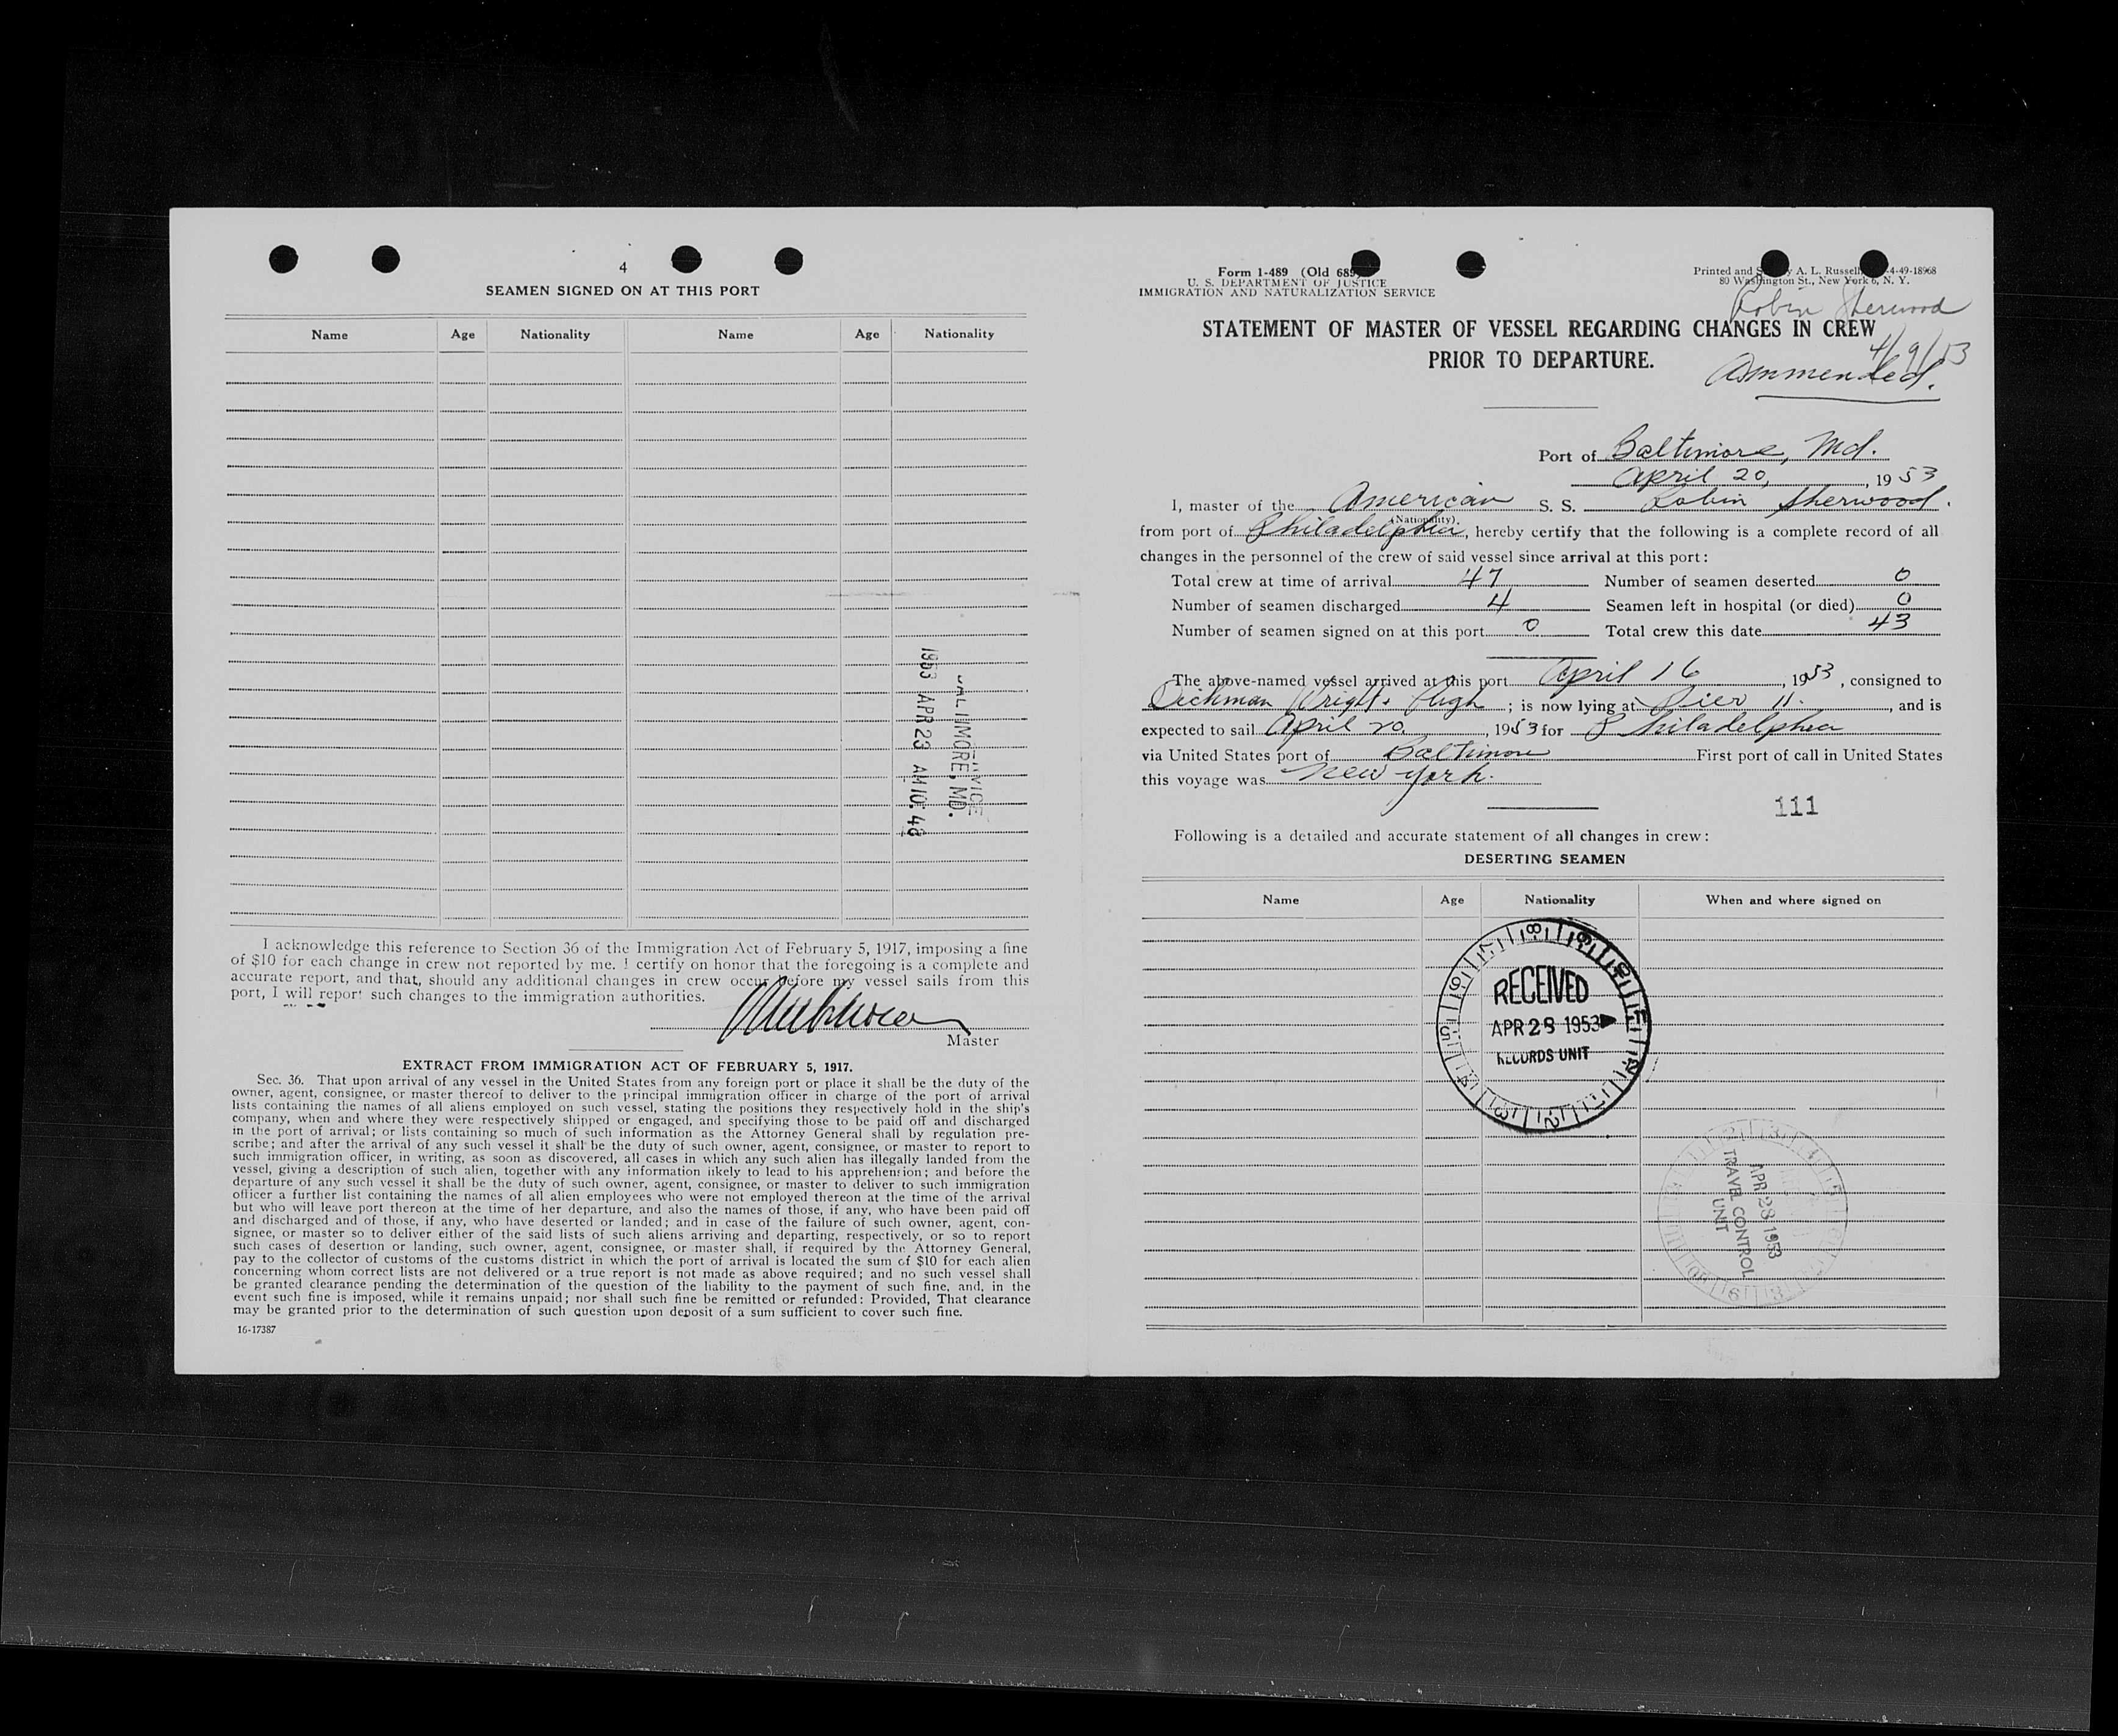 4
SEAMEN SIGNED ON AT THIS PORT
Name Age Nationality Name Age Nationality
BALTIMORE, MD.
1953 APR 23 AM 10:48
I acknowledge this reference to Section 36 of the Immigration Act of February 5, 1917, imposing a fine
of $10 for each change in crew not reported by me. I certify on honor that the foregoing is a complete and
accurate report, and that, should any additional changes in crew occur before my vessel sails from this
port, I will report such changes to the immigration authorities.
Master
EXTRACT FROM IMMIGRATION ACT OF FEBRUARY 5, 1917.
Sec. 36. That upon arrival of any vessel in the United States from any foreign port or place it shall be the duty of the
owner, agent, consignee, or master thereof to deliver to the principal immigration officer in charge of the port of arrival
lists containing the names of all aliens employed on such vessel, stating the positions they respectively hold in the ship's
company, when and where they were respectively shipped or engaged, and specifying those to be paid off and discharged
in the port of arrival; or lists containing so much of such information as the Attorney General shall by regulation pre-
scribe; and after the arrival of any such vessel it shall be the duty of such owner, agent, consignee, or master to report to
such immigration officer, in writing, as soon as discovered, all cases in which any such alien has illegally landed from the
vessel, giving a description of such alien, together with any information likely to lead to his apprehension; and before the
departure of any such vessel it shall be the duty of such owner, agent, consignee, or master to deliver to such immigration
officer a further list containing the names of all alien employees who were not employed thereon at the time of the arrival
but who will leave port thereon at the time of her departure, and also the names of those, if any, who have been paid off
and discharged and of those, if any, who have deserted or landed; and in case of the failure of such owner, agent, con-
signee, or master so to deliver either of the said lists of such aliens arriving and departing, respectively, or so to report
such cases of desertion or landing, such owner, agent, consignee, or master shall, if required by the Attorney General,
pay to the collector of customs of the customs district in which the port of arrival is located the sum of $10 for each alien
concerning whom correct lists are not delivered or a true report is not made as above required; and no such vessel shall
be granted clearance pending the determination of the question of the liability to the payment of such fine, and, in the
event such fine is imposed, while it remains unpaid; nor shall such fine be remitted or refunded: Provided, That clearance
may be granted prior to the determination of such question upon deposit of a sum sufficient to cover such fine.
16-17387
Form 1-489 (Old 689
U. S. DEPARTMENT OF JUSTICE
IMMIGRATION AND NATURALIZATION SERVICE
Printed and A. L. Russell 4-49-18968
80 Washington St., New York 6, N. Y.
Robin Sherwood
STATEMENT OF MASTER OF VESSEL REGARDING CHANGES IN CREW
PRIOR TO DEPARTURE.
4/9/53
Ammended.
Port of Baltimore, Md.
April 20, 1953
I, master of the American S. S. Robin Sherwood.
(Nationality)
from port of Philadelphia, hereby certify that the following is a complete record of all
changes in the personnel of the crew of said vessel since arrival at this port:
Total crew at time of arrival 47 Number of seamen deserted 0
Number of seamen discharged 4 Seamen left in hospital (or died) 0
Number of seamen signed on at this port 0 Total crew this date 43
The above-named vessel arrived at this port April 16, 1953, consigned to
Dichman Wright & Pugh; is now lying at Pier 11., and is
expected to sail April 20, 1953 for Philadelphia
via United States port of Baltimore First port of call in United States
this voyage was New York.
111
Following is a detailed and accurate statement of all changes in crew:
DESERTING SEAMEN
Name Age Nationality When and where signed on
RECEIVED
APR 28 1953
RECORDS UNIT
APR 28 1953
TRAVEL CONTROL
UNIT